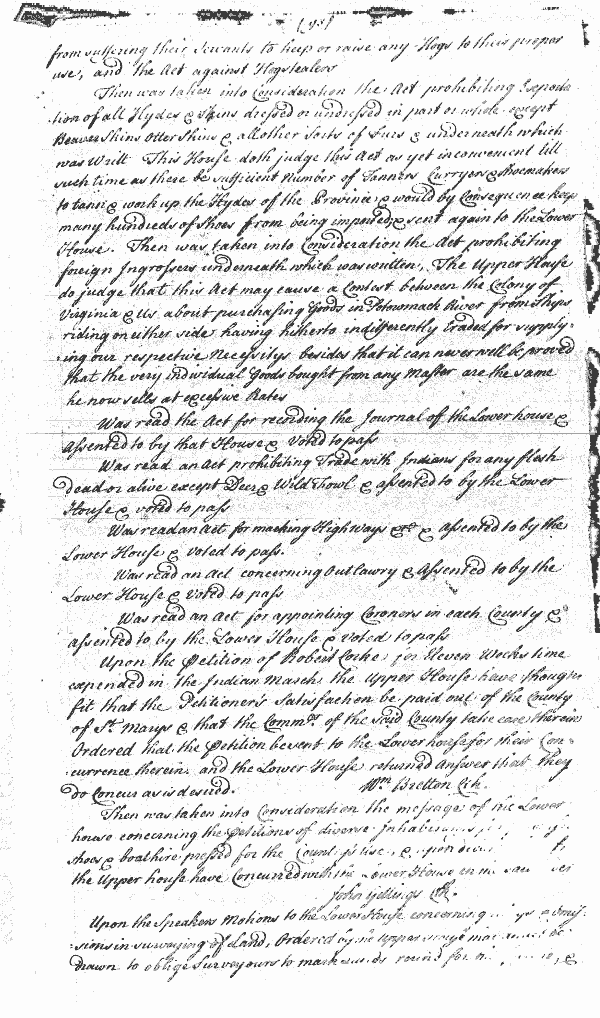 (95)
from suffering their Servants to keep or raise any Hogs to their proper
use, and the Act against Hogstealers
Then was taken into Consideration the Act prohibiting Exporta-
tion of all Hydes & Skins dressed or undressed in part or whole except
Beaver Skins Otter Skins & all other Sorts of Furs & underneath which
was Writt This House doth judge this Act as yet inconvenient till
such time as there be sufficient Number of Tanners Curryers & Shoemakers
to tann & work up the Hydes of the Province & would by Consequence keep
many hundreds of Shoes from being imported & sent again to the Lower
House. Then was taken into Consideration the Act prohibiting
foreign Ingrossers underneath which was written, The Upper House
do judge that this Act may cause a Contest between the Colony of
Virginia & Us about purchasing Goods in Potowmack River from Ships
riding on either side having hitherto indifferently traded for supply-
ing our respective Necessitys besides that it can never well be proved
that the very individual Goods bought from any Master are the same
he now sells at excessive Rates
Was read the Act for recording the Journal of the Lower house &
assented to by that House & Voted to pass
Was read an Act prohibiting Trade with Indians for any flesh
dead or alive except Deer & Wild Fowl & assented to by the Lower
House & voted to pass
Was read an Act for marking Highways &c & assented to by the
Lower House & voted to pass.
Was read an Act concerning Outlawry & Assented to by the
Lower House & voted to pass
Was read an Act for appointing Coroners in each County &
assented to by the Lower House & voted to pass
Upon the Petition of Robert Cocke for Eleven Weeks time
expended in the Indian March the Upper House have thought
fit that the Petitioner's Satisfaction be paid out of the County
of St. Marys & that the Commrs of the Said County take care therein
Ordered that the Petition be sent to the Lower house for their Con-
currence therein and the Lower House returned Answer that they
do Concur as is desired. Wm Bretton Clk.
Then was taken into Consideration the message of the Lower
house concerning the Petitions of diverse Inhabitants
shoes & boat hire pressed for the Countrys use, & upon
the Upper house have Concurred with the Lower House in
John Gittings Clk.
Upon the Speakers Motions to the Lower House concerning & Omis-
sions in surveying of Land, Ordered by the Upper house that be
drawn to oblige Surveyours to mark round for &